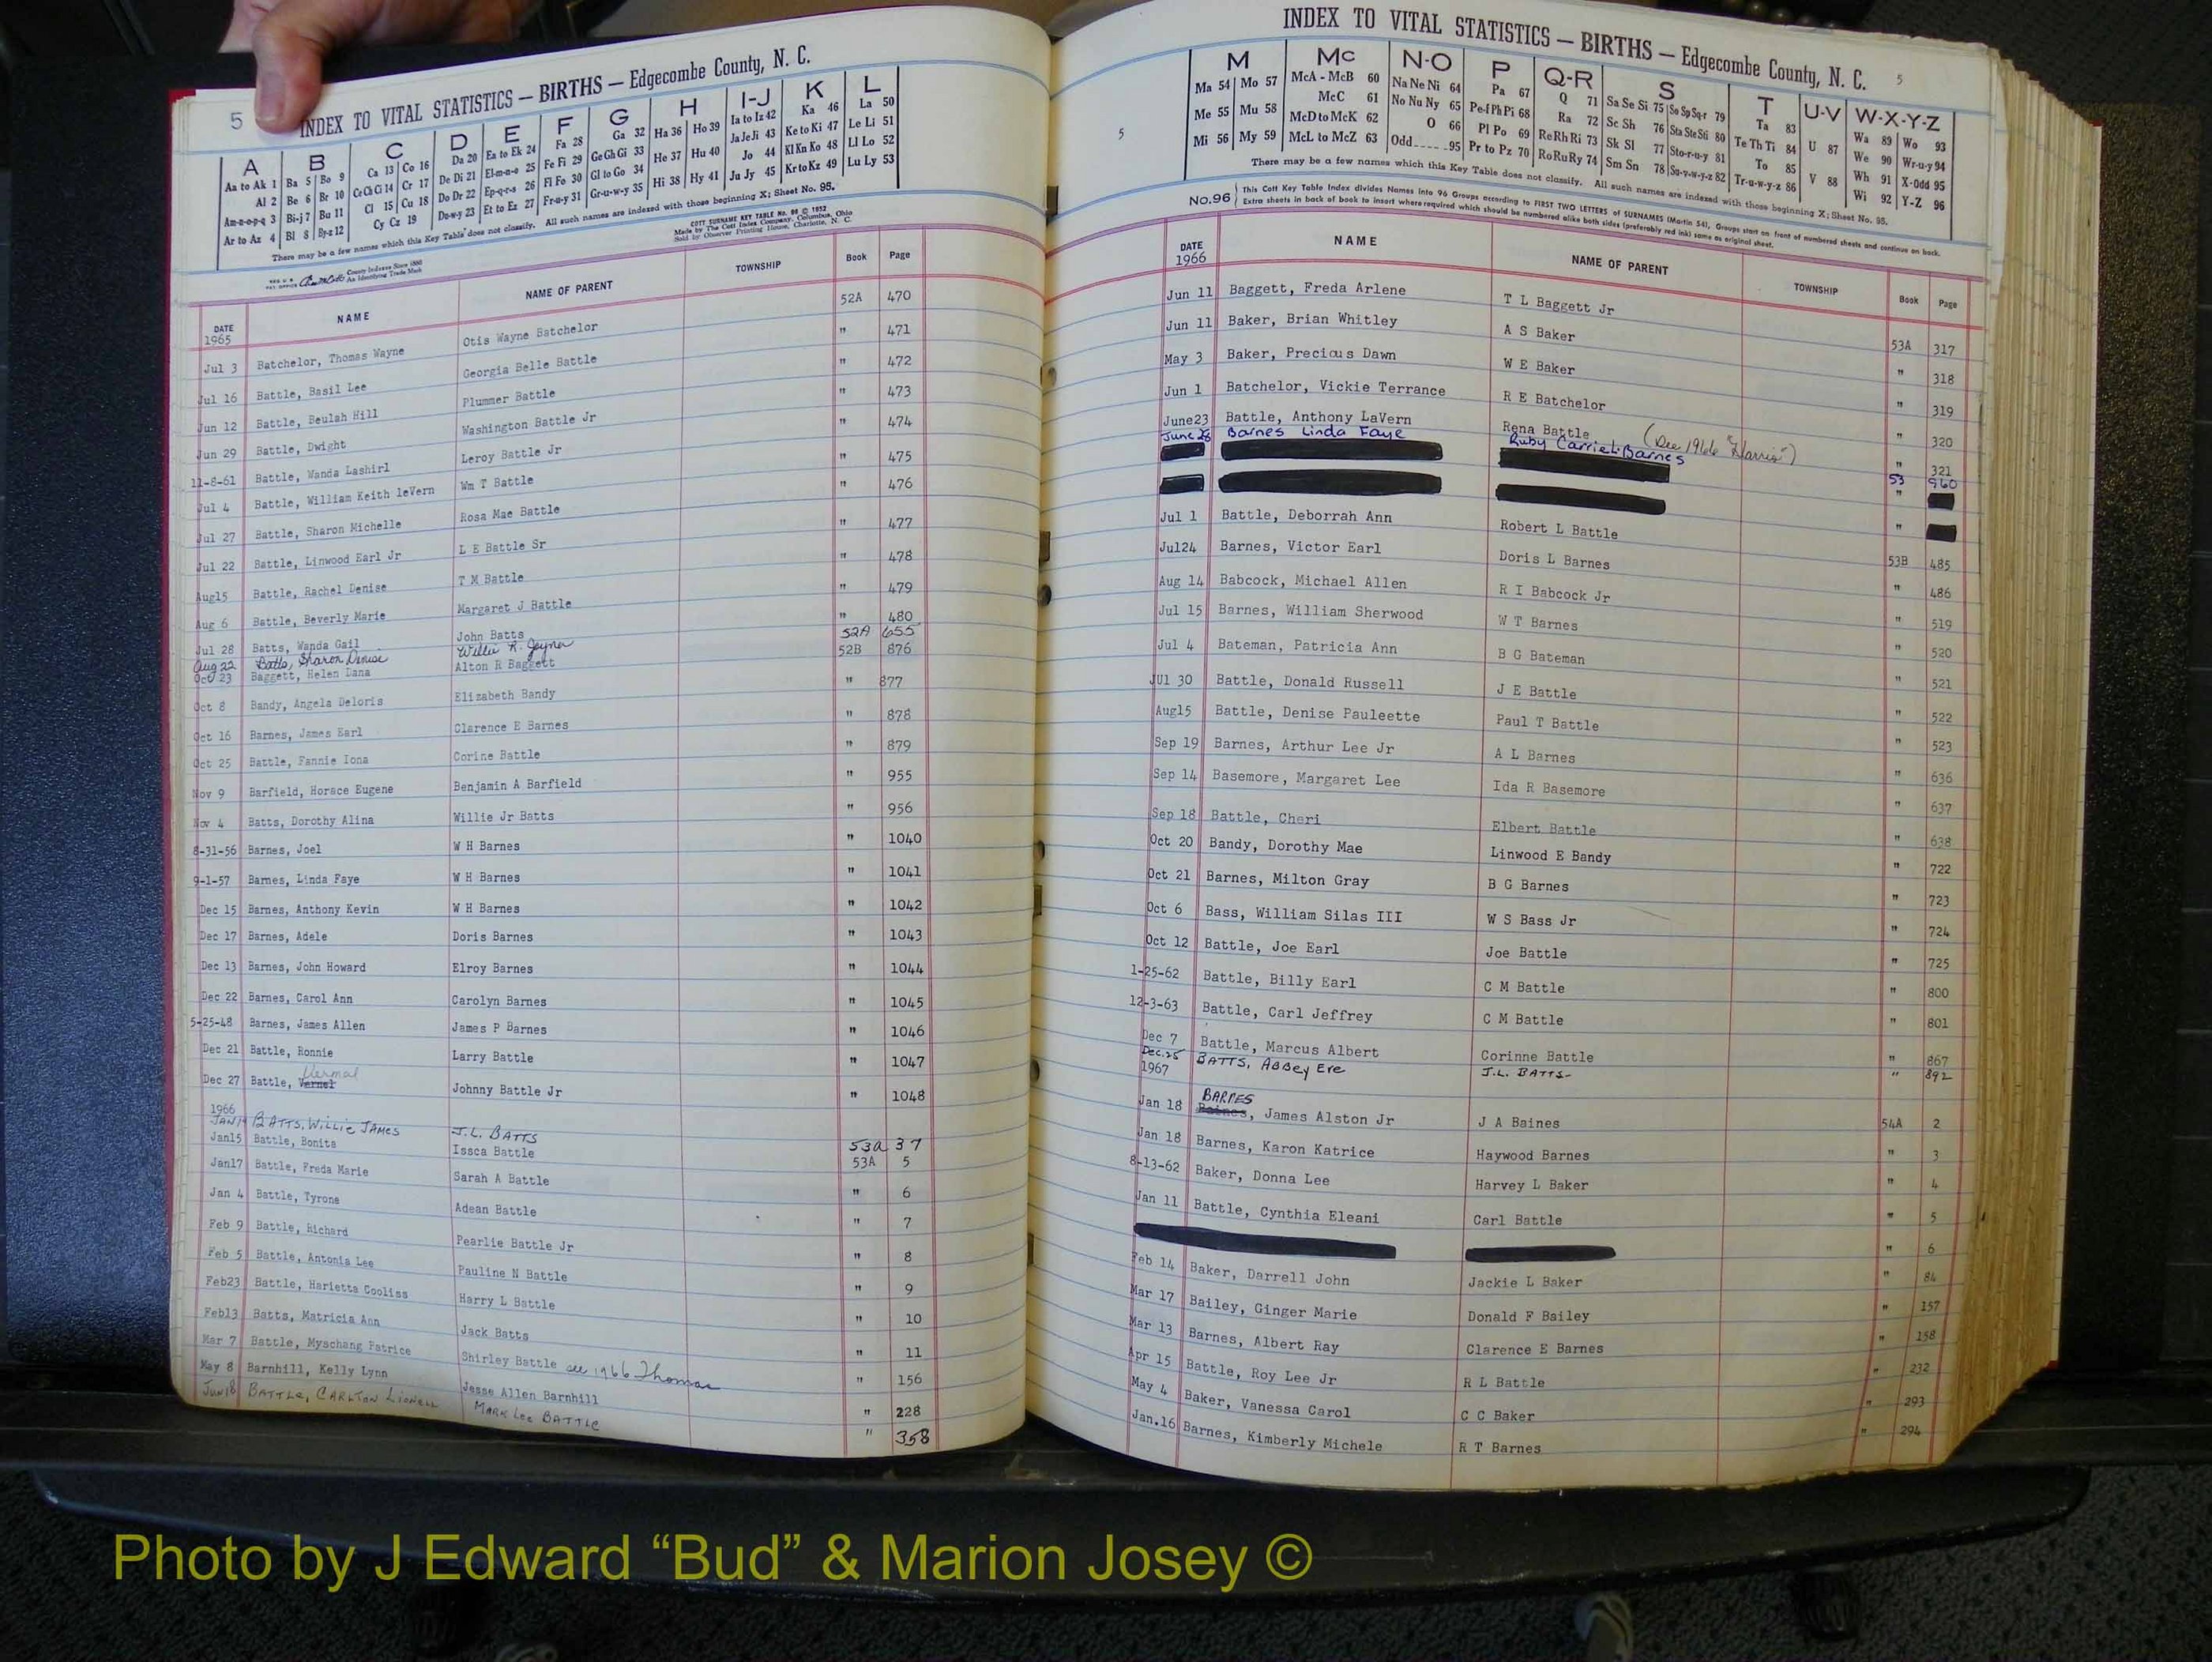 5
INDEX TO VITAL STATISTICS — BIRTHS — Edgecombe County, N. C.
A B C D E F G H I-J K L
Aa to Ak 1 Ba 5 Bo 9 Ca 13 Co 16 Da 20 Ea to Ek 24 Fa 28 Ga 32 Ha 36 Ho 39 Ia to Iz 42 Ka 46 La 50
Al 2 Be 6 Br 10 Ce Ch Ci 14 Cr 17 De Di 21 El-m-n-o 25 Fe Fi 29 Ge Gh Gi 33 He 37 Hu 40 Ja Je Ji 43 Ke to Ki 47 Le Li 51
Am-n-o-p-q 3 Bi-j 7 Bu 11 Cl 15 Cu 18 Do Dr 22 Ep-q-r-s 26 Fl Fo 30 Gl to Go 34 Hi 38 Hy 41 Jo 44 Kl Kn Ko 48 Ll Lo 52
Ar to Az 4 Bl 8 By-z 12 Cy Cz 19 Du-w-y 23 Et to Ez 27 Fr-u-y 31 Gr-u-w-y 35 Ju Jy 45 Kr to Kz 49 Lu Ly 53
There may be a few names which this Key Table does not classify. All such names are indexed with those beginning X; Sheet No. 95.
COTT SURNAME KEY TABLE No. 96 © 1952
Made by The Cott Index Company, Columbus, Ohio
Sold by Observer Printing House, Charlotte, N. C.
County Indexes Since 1888
An Identifying Trade Mark
DATE NAME NAME OF PARENT TOWNSHIP Book Page
1965
Jul 3 Batchelor, Thomas Wayne Otis Wayne Batchelor 52A 470
Jul 16 Battle, Basil Lee Georgia Belle Battle " 471
Jun 12 Battle, Beulah Hill Plummer Battle " 472
Jun 29 Battle, Dwight Washington Battle Jr " 473
11-8-61 Battle, Wanda Lashirl Leroy Battle Jr " 474
Jul 4 Battle, William Keith leVern Wm T Battle " 475
Jul 27 Battle, Sharon Michelle Rosa Mae Battle " 476
Jul 22 Battle, Linwood Earl Jr L E Battle Sr " 477
Aug15 Battle, Rachel Denise T M Battle " 478
Aug 6 Battle, Beverly Marie Margaret J Battle " 479
Jul 28 Batts, Wanda Gail John Batts " 480
Aug 22 Batts, Sharon Denise Willie R. Joyner 52A 655
Oct 23 Baggett, Helen Dana Alton R Baggett 52B 876
Oct 8 Bandy, Angela Deloris Elizabeth Bandy " 877
Oct 16 Barnes, James Earl Clarence E Barnes " 878
Oct 25 Battle, Fannie Iona Corine Battle " 879
Nov 9 Barfield, Horace Eugene Benjamin A Barfield " 955
Nov 4 Batts, Dorothy Alina Willie Jr Batts " 956
8-31-56 Barnes, Joel W H Barnes " 1040
9-1-57 Barnes, Linda Faye W H Barnes " 1041
Dec 15 Barnes, Anthony Kevin W H Barnes " 1042
Dec 17 Barnes, Adele Doris Barnes " 1043
Dec 13 Barnes, John Howard Elroy Barnes " 1044
Dec 22 Barnes, Carol Ann Carolyn Barnes " 1045
5-25-48 Barnes, James Allen James P Barnes " 1046
Dec 21 Battle, Ronnie Larry Battle " 1047
Vermal
Dec 27 Battle, Vernel Johnny Battle Jr " 1048
1966
JAN 14 BATTS, WILLIE JAMES J.L. BATTS 53a 37
Jan15 Battle, Bonita Issca Battle 53A 5
Jan17 Battle, Freda Marie Sarah A Battle " 6
Jan 4 Battle, Tyrone Adean Battle " 7
Feb 9 Battle, Richard Pearlie Battle Jr " 8
Feb 5 Battle, Antonia Lee Pauline N Battle " 9
Feb23 Battle, Harietta Cooliss Harry L Battle " 10
Feb13 Batts, Matricia Ann Jack Batts " 11
Mar 7 Battle, Myschang Patrice Shirley Battle see 1966 Thomas " 156
May 8 Barnhill, Kelly Lynn Jesse Allen Barnhill " 228
Jun 18 BATTLE, CARLTON LIONELL MARK Lee BATTLE " 358
INDEX TO VITAL STATISTICS — BIRTHS — Edgecombe County, N. C. 5
5
M Mc N-O P Q-R S T U-V W-X-Y-Z
Ma 54 Mo 57 McA - McB 60 Na Ne Ni 64 Pa 67 Q 71 Sa Se Si 75 So Sp Sq-r 79 Ta 83 U 87 Wa 89 Wo 93
Me 55 Mu 58 McC 61 No Nu Ny 65 Pe-f Ph Pi 68 Ra 72 Sc Sh 76 Sta Ste Sti 80 Te Th Ti 84 V 88 We 90 Wr-u-y 94
Mi 56 My 59 McD to McK 62 O 66 Pl Po 69 Re Rh Ri 73 Sk Sl 77 Sto-r-u-y 81 To 85 Wh 91 X-Odd 95
McL to McZ 63 Odd 95 Pr to Pz 70 Ro Ru Ry 74 Sm Sn 78 Su-v-w-y-z 82 Tr-u-w-y-z 86 Wi 92 Y-Z 96
There may be a few names which this Key Table does not classify. All such names are indexed with those beginning X; Sheet No. 95.
No.96 This Cott Key Table Index divides Names into 96 Groups according to FIRST TWO LETTERS of SURNAMES (Martin 54). Groups start on front of numbered sheets and continue on back.
Extra sheets in back of book to insert where required which should be numbered alike both sides (preferably red ink) same as original sheet.
DATE NAME NAME OF PARENT TOWNSHIP Book Page
1966
Jun 11 Baggett, Freda Arlene T L Baggett Jr 53A 317
Jun 11 Baker, Brian Whitley A S Baker " 318
May 3 Baker, Precious Dawn W E Baker " 319
Jun 1 Batchelor, Vickie Terrance R E Batchelor " 320
June23 Battle, Anthony LaVern Rena Battle (See 1966 "Harris") " 321
June 28 Barnes Linda Faye Ruby Carriel Barnes 53 960
"
"
Jul 1 Battle, Deborrah Ann Robert L Battle 53B 485
Jul24 Barnes, Victor Earl Doris L Barnes " 486
Aug 14 Babcock, Michael Allen R I Babcock Jr " 519
Jul 15 Barnes, William Sherwood W T Barnes " 520
Jul 4 Bateman, Patricia Ann B G Bateman " 521
JUl 30 Battle, Donald Russell J E Battle " 522
Aug15 Battle, Denise Pauleette Paul T Battle " 523
Sep 19 Barnes, Arthur Lee Jr A L Barnes " 636
Sep 14 Basemore, Margaret Lee Ida R Basemore " 637
Sep 18 Battle, Cheri Elbert Battle " 638
Oct 20 Bandy, Dorothy Mae Linwood E Bandy " 722
Oct 21 Barnes, Milton Gray B G Barnes " 723
Oct 6 Bass, William Silas III W S Bass Jr " 724
Oct 12 Battle, Joe Earl Joe Battle " 725
1-25-62 Battle, Billy Earl C M Battle " 800
12-3-63 Battle, Carl Jeffrey C M Battle " 801
Dec 7 Battle, Marcus Albert Corinne Battle " 867
Dec. 25 BATTS, ABBey Ere J.L. BATTS " 892
1967
BARNES
Jan 18 Baines, James Alston Jr J A Baines 54A 2
Jan 18 Barnes, Karon Katrice Haywood Barnes " 3
8-13-62 Baker, Donna Lee Harvey L Baker " 4
Jan 11 Battle, Cynthia Eleani Carl Battle " 5
" 6
Feb 14 Baker, Darrell John Jackie L Baker " 84
Mar 17 Bailey, Ginger Marie Donald F Bailey " 157
Mar 13 Barnes, Albert Ray Clarence E Barnes " 158
Apr 15 Battle, Roy Lee Jr R L Battle " 232
May 4 Baker, Vanessa Carol C C Baker " 293
Jan.16 Barnes, Kimberly Michele R T Barnes " 294
Photo by J Edward “Bud” & Marion Josey ©